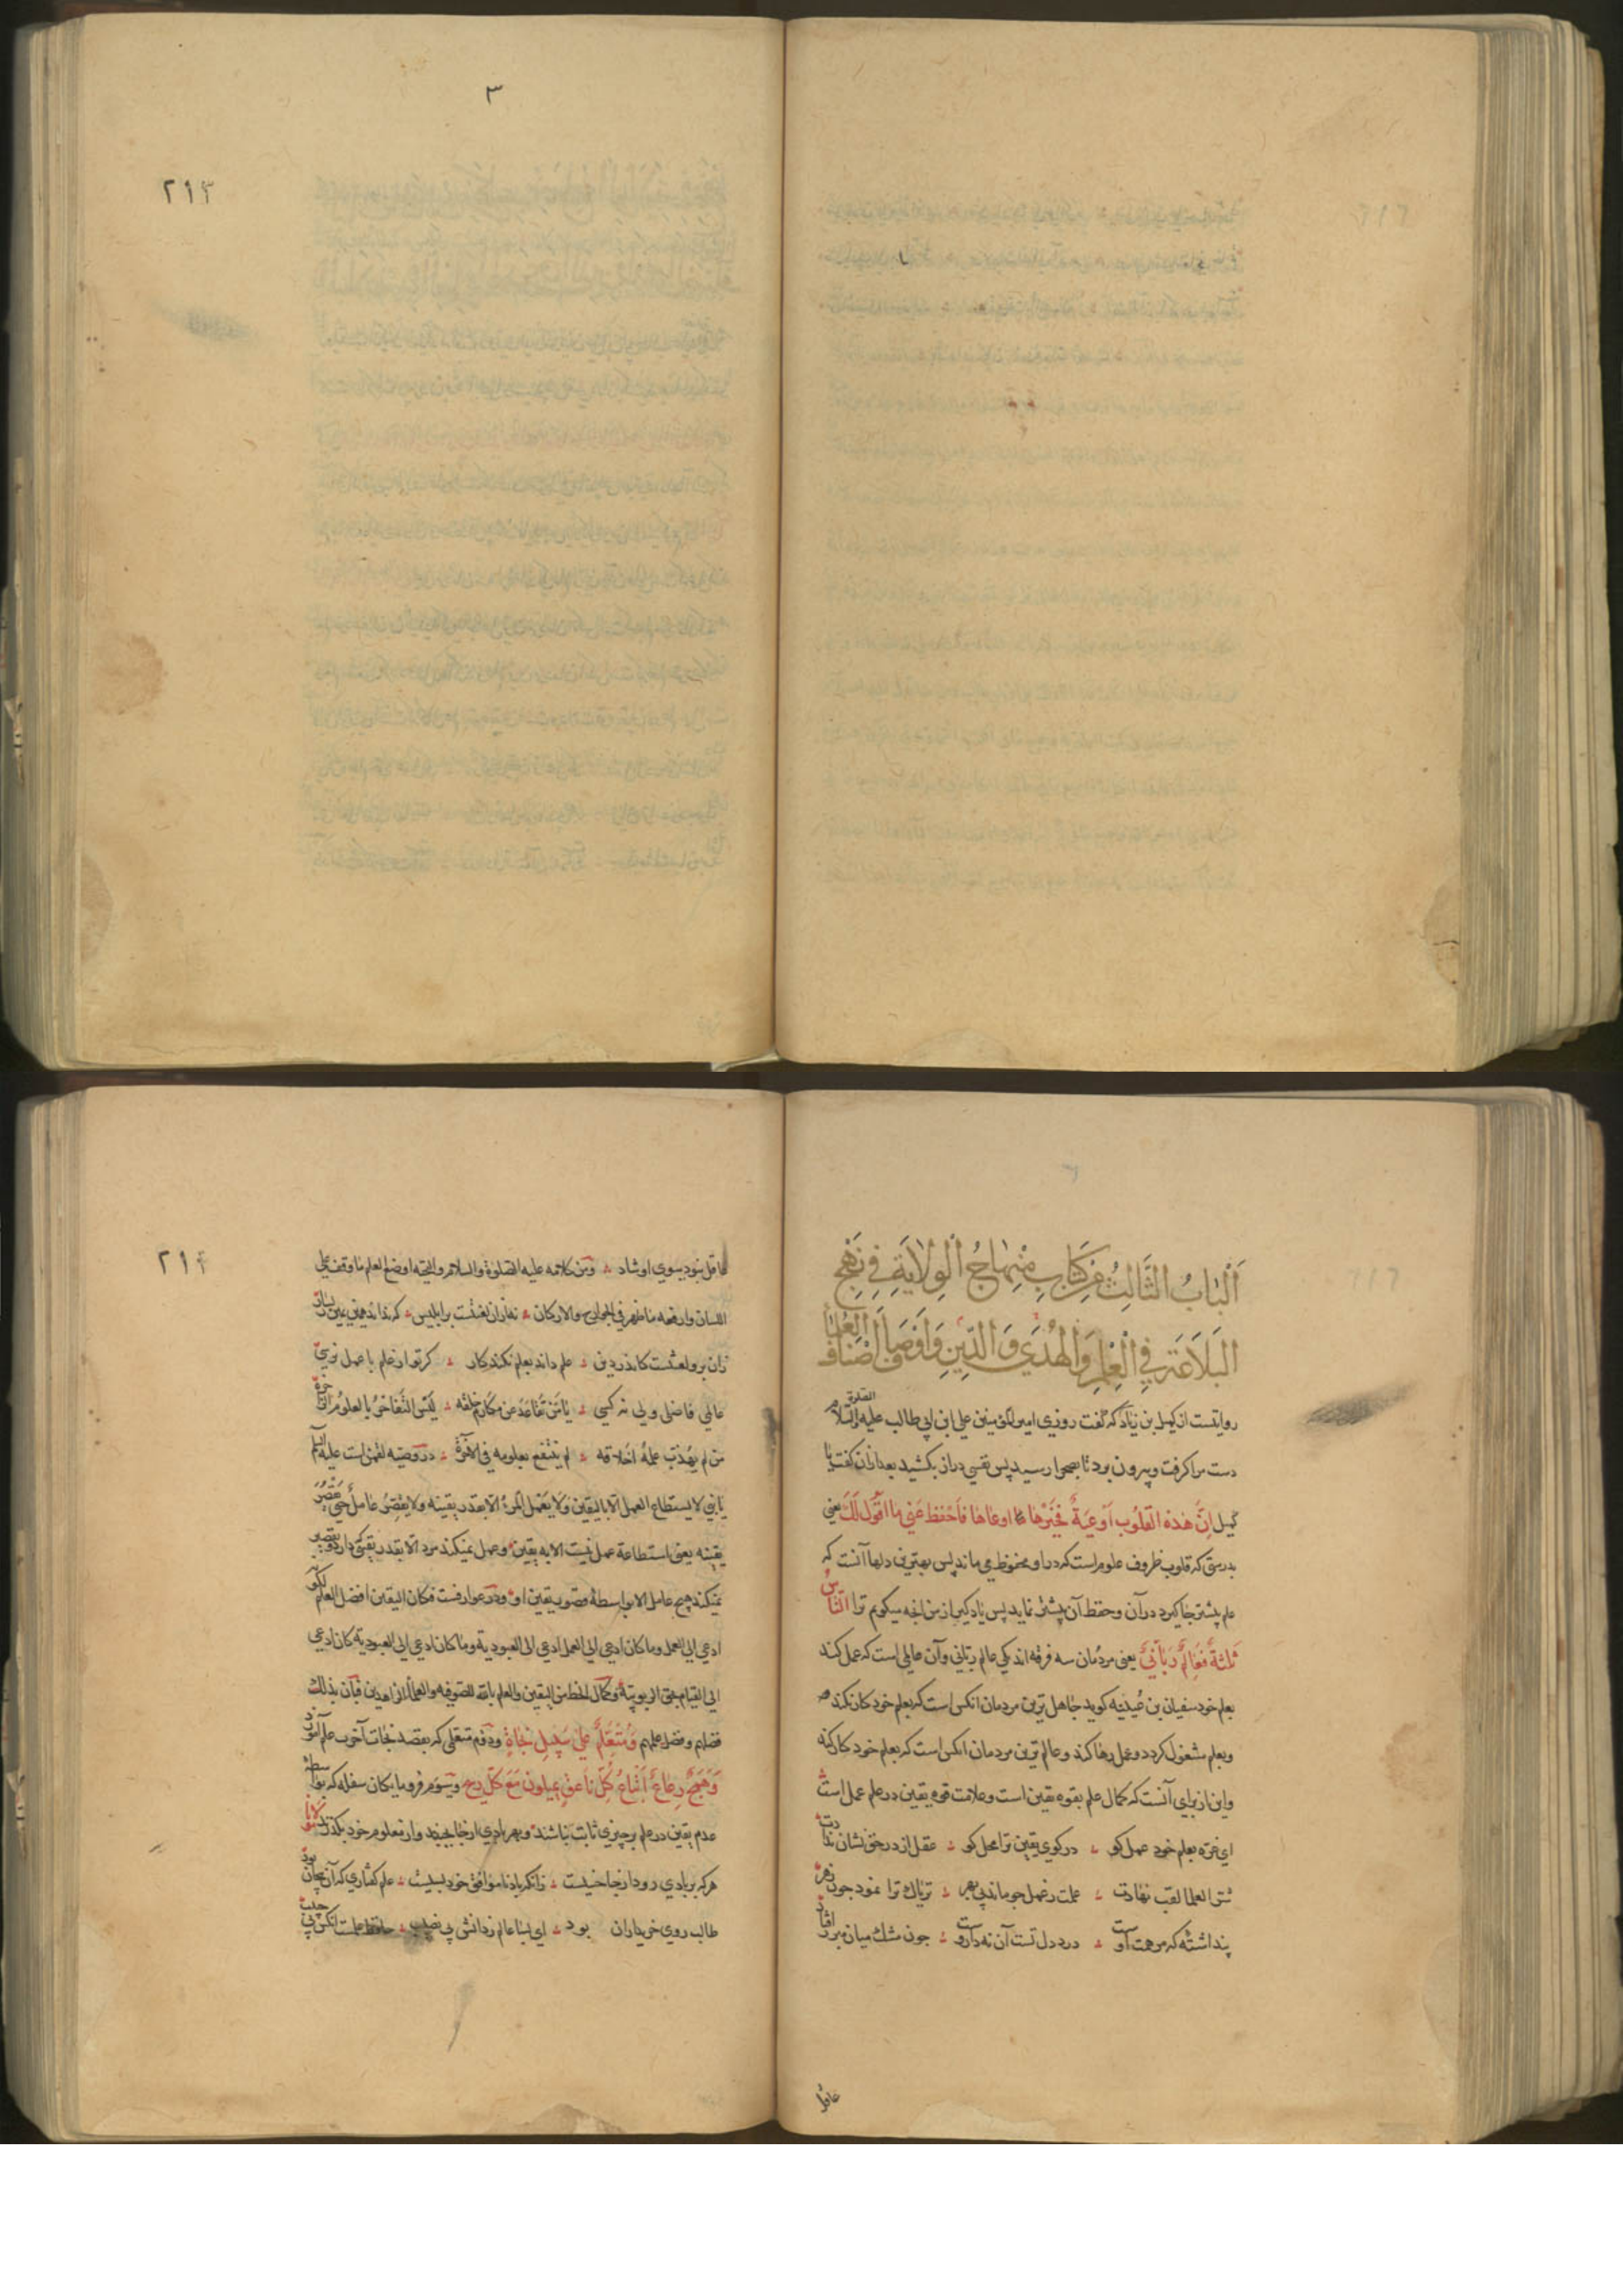 ٣
٢١٣
اَلْبَابُ الثَّالِثُ مِنْ كِتَابِ مِنْهَاجُ الْوِلَايَةِ فِي نَهْجِ
الْبَلَاغَةِ فِي الْعِلْمِ وَالْهُدَى وَالدِّينِ وَاَوْصَافِ اَصْنَافِ الْعُلَمَاءِ
روایتست از کمیل بن زیاد که گفت روزی امیر المؤمنین علی ابن ابی طالب علیه الصلوة والسلام
دست مرا کرفت وبیرون برد تا بصحرا رسید پس نفسی دراز بکشید بعد ازان کفت یا
کمیل اِنَّ هٰذِهِ الْقُلُوبَ اَوْعِيَةٌ فَخَيْرُهَا اوعاها فَاحْفَظ عَنِّي مَا اَقُولُ لَكَ یعنی
بدرستی که قلوب ظروف علوم است که درو محفوظ می ماند پس بهترین دلها آنست که
علم بیشتر جا کیرد در آن وحفظ آن بیشتر نماید پس یاد کیر از من انچه میکویم ترا النَّاسُ
ثَلٰثَةٌ فَعَالِمٌ رَبَّانِيٌّ یعنی مردُمان سه فرقه اند یکی عالم ربّانی وآن عالمی است که عمل کند
بعلم خود سفیان بن عُیَیْنَه کوید جاهل ترین مردمان انکس است که بعلم خود کار نکند
وبعلم مشغول کردد وعمل رها کند وعالم ترین مردمان انکس است که بعلم خود کار کند
واین از برای آنست که کمال علم بقوه یقین است وعلامت قوه یقین در علم عمل است
ای غرّه بعلم خود عمل کو ؞ در کوی یقین ترا محل کو ؞ عقل از در حق نشان
شمس العلما لقب نهادت ؞ علمت ز عمل چو ماند بی بهر ؞ تریاك ترا نمود چون زهر
پنداشته که مرهمت اوست ؞ درد دل تست آن نه داروست ؞ چون مشك میان
عاقل
٢١٤
عاقل نبود بسوی او شاد ؞ ومن کلامه علیه الصلوة والسلام والتحیه اوضع العلم ما وقف علی
اللسان وارفعه ما ظهر فی الجوارح والارکان ؞ نه ازان لعنتست بر ابلیس ؞ که نداند همی یمین ز یسار
زان برو لعنتست کاندر دین ؞ علم داند بعلم نکند کار ؞ کر تو از علم با عمل نرسی
عالمی فاضلی ولی نه کسی ؞ يَا مَنْ تَقَاعَدَ عَنْ مَكَارِمِ خلقه ؞ لَيْسَ التَّفَاخُرُ بِالعُلُومِ الزَّاخِرَة
من لم يُهَذِّب علمُهُ اَخلاقه ؞ لم ينتفع بعلومه في الآخرة ؞ در وصیّه لقمن است علیه السلم
يَا بُنَيَّ لا يستطاع العمل الا باليقين وَلَا يَعْمَلُ الْمَرْءُ الا بقدر يقينه ولا يُقَصِّرُ عَامِلٌ حَتَّى يُقَصِّرَ
يقينه یعنی استطاعة عمل نیست الا به یقین وعمل نمیکند مرد الا بقدر یقینی که دارد وتقصیر
نمیکند هیچ عامل الا بواسطهٔ قصور یقین او ودر عوارفست فکان الیقین افضل العلم لکونه
ادعی الی العمل وما کان ادعی الی العمل ادعی الی العبودیة وما کان ادعی الی العبودیة کان ادعی
الی القیام بحق الربوبیة وکمال الحظ من الیقین والعلم بالله للصوفیه والعلماء الزاهدین فبان بذلك
فضلهم وفضل علمهم وَمُتَعَلِّمٌ عَلٰى سَبِيلِ نَجَاةٍ ودوم متعلمی که بقصد نجات آخرت علم آموزد
وَهَمَجٌ رِعَاعٌ اَتْبَاعُ كُلِّ نَاعِقٍ يميلون مَعَ كُلِّ ريح وسوم فرومایکان سفله که بواسطه
عدم یقین در علم بر چیزی ثابت نباشند وبهر بادی از جا بجنبند واز معلوم خود بکذرند
هر که بر بادی رود از جا خسیست ؞ زانکه باد ناموافق خود بسیست ؞ علم کفتاری که آن بیجان بود
طالب روی خریداران بود ؞ ای بسا عالم ز دانش بی نصیب ؞ حافظ علمست انکس نی حبیب